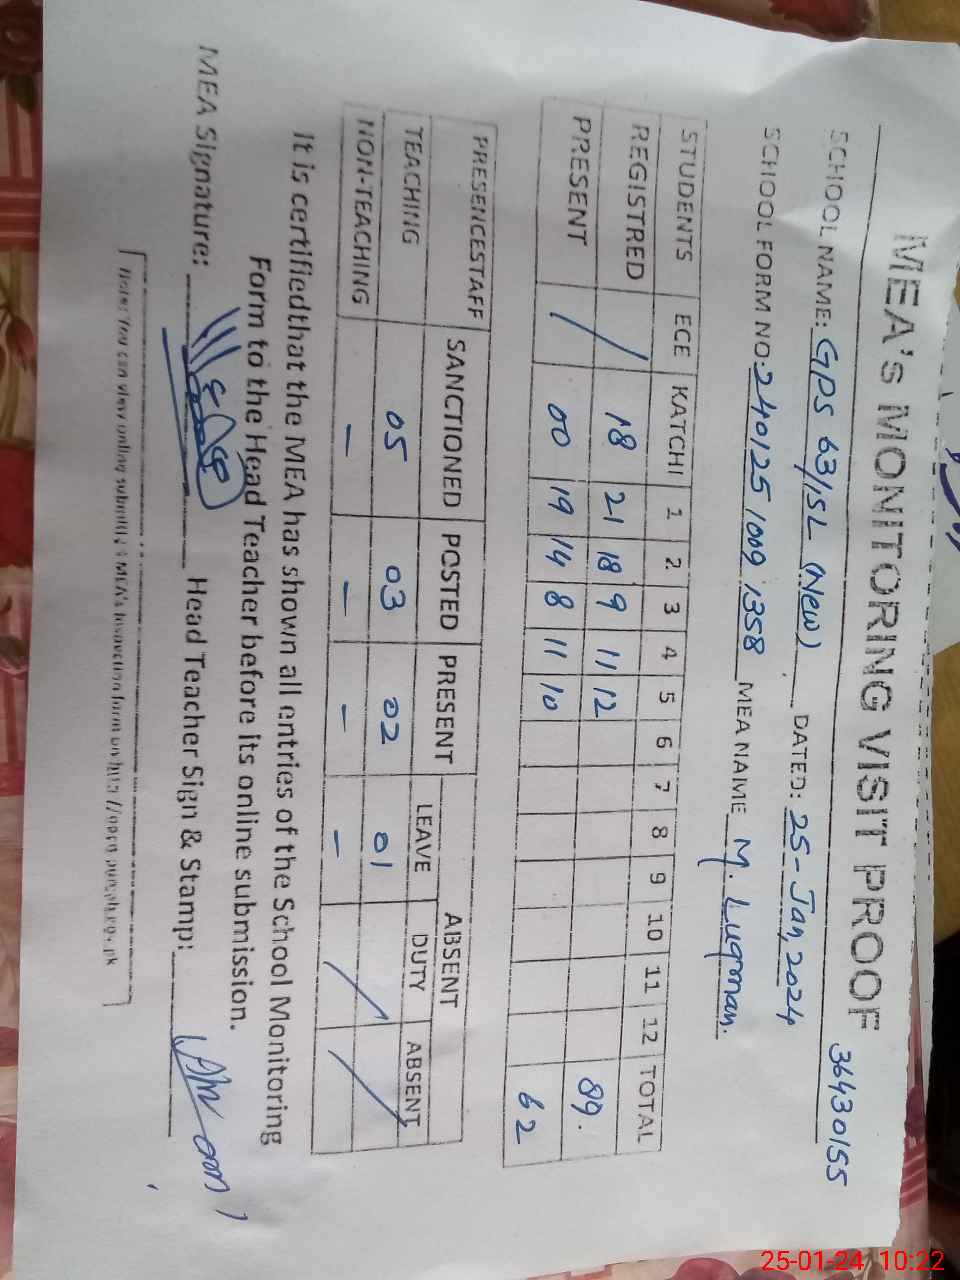 MEA'S MONITORING VISIT PROOF
36430155
SCHOOL NAME: GPS 63/5L (New) DATED: 25-Jan, 2024
SCHOOL FORM NO: 240125 1009 1358 MEA NAME M. Luqman.
STUDENTS ECE KATCHI 1 2 3 4 5 6 7 8 9 10 11 12 TOTAL
REGISTRED / 18 21 18 9 11 12 89.
PRESENT / 00 19 14 8 11 10 62
PRESENCESTAFF SANCTIONED POSTED PRESENT ABSENT
LEAVE DUTY ABSENT
TEACHING 05 03 02 01 / /
NON-TEACHING - - - -
It is certifiedthat the MEA has shown all entries of the School Monitoring
Form to the Head Teacher before its online submission.
MEA Signature: Head Teacher Sign & Stamp:
Note: You can view online submitted MEA's Inspection form on
25-01-24 10:22